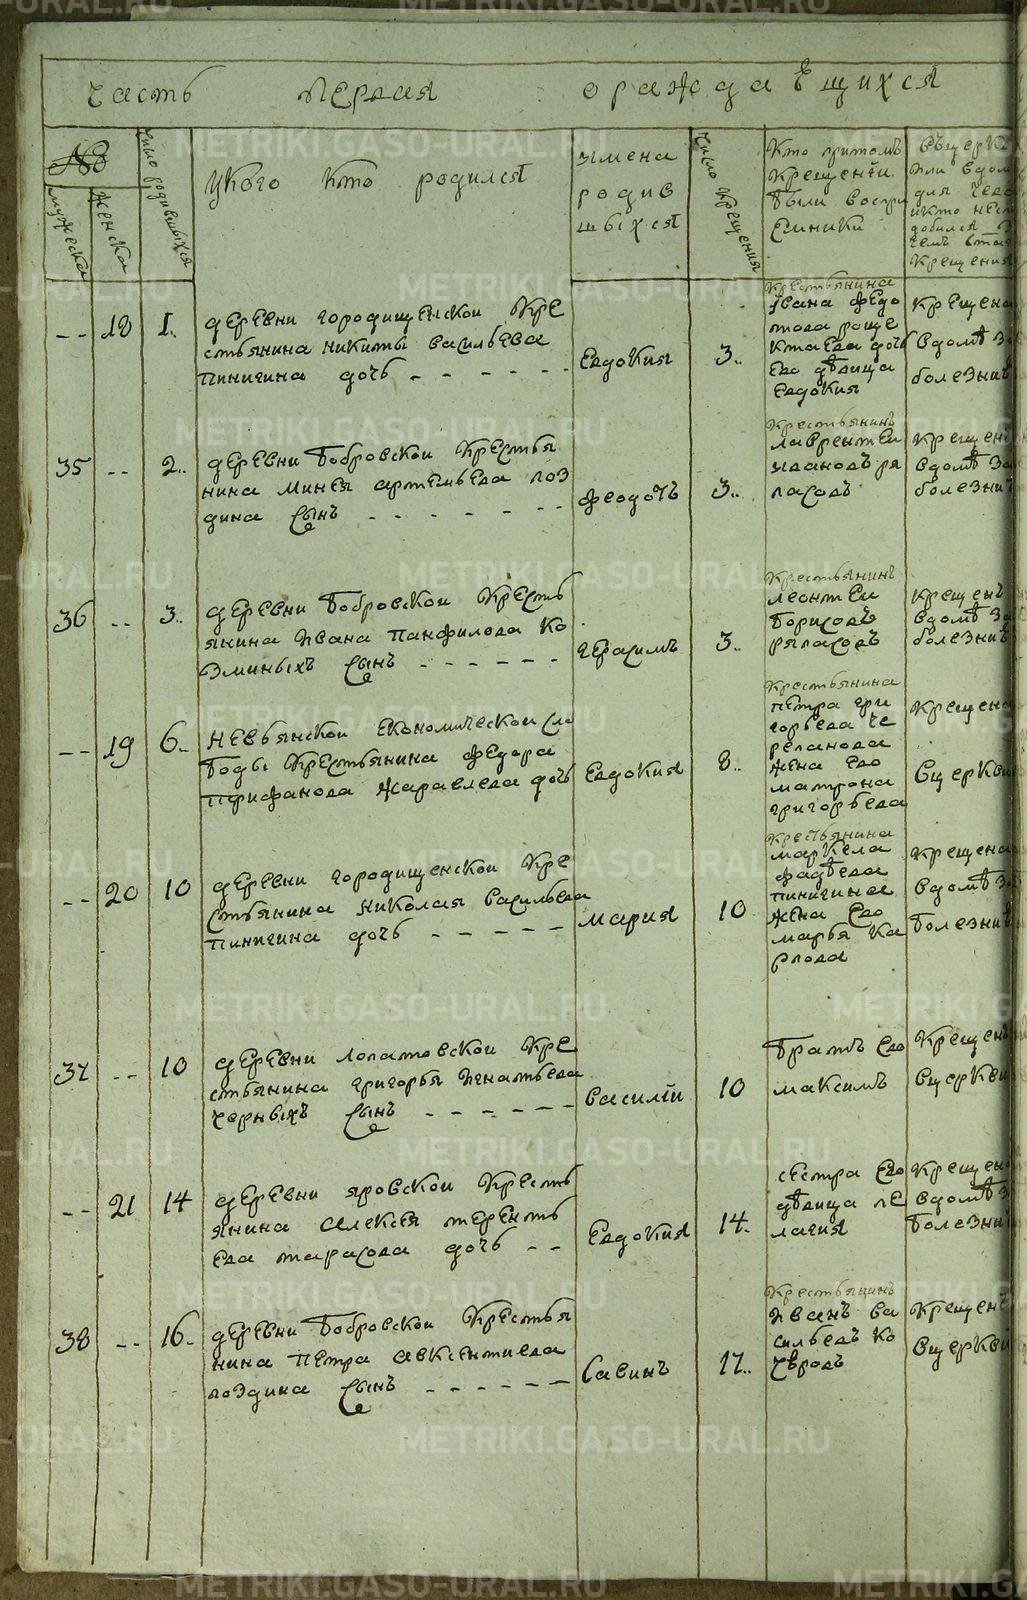 Часть первая о раждающихся
№
мужеска
женска
число родившыхся
У кого кто родился
имена
родив
шыхся
число крещения
Кто притомъ
крещенїи
были воспри
емники
въцерк
или вдом
для чево
икто не
добился
чемъ
крещения
-- 18 1. деревни городищенской кре
стьянина никиты васильева
пинигина дочь - - - - - -
Евдокия
3..
крестьянина
Ивана федо
това
дочь
Ево дѣвица
Евдокия
крещена
вдомѣ за
болезнию
35 -- 2.. деревни бобровской крестья
нина минея артемьева поз
дина сынъ - - - - - -
феодотъ
3..
крестьянинъ
лаврентеи
ивановъ ря
пасовъ
крещенъ
вдомѣ за
болезнию
36 -- 3.. деревни бобровской кресть
янина ивана панфилова ко
зминыхъ сынъ - - - - - -
герасимъ
3..
крестьянинъ
леонтеи
борисовъ
ряпасовъ
крещенъ
вдомѣ за
болезнию
-- 19 6.. невьянской економической сло
боды крестьянина федора
трифанова жаравлева дочь
Евдокия
8..
крестьянина
петра гри
горьева че
репанова
жена Ево
матрона
григорьева
крещена
вцеркви
-- 20 10 деревни городищенской кре
стьянина николая васильева
пинигина дочь - - - - -
мария
10
крестьянина
маркела
фадѣева
пинигина
жена Ево
марья ка
рпова
крещена
вдомѣ за
болезнию
37 -- 10 деревни лопатовской кре
стьянина григорья игнатьева
черныхъ сынъ - - - - - -
василїи
10
братъ Ево
максимъ
крещенъ
вцеркви
-- 21 14 деревни яровской кресть
янина алексея теренть
ева тарасова дочь - -
Евдокия
14.
сестра Ево
дѣвица пе
лагия
крещена
вдомѣ за
болезнию
38 -- 16. деревни бобровской крестья
нина петра авксентиева
поздина сынъ - - - - - -
Савинъ
17..
крестьянинъ
иванъ ва
сильевъ ко
чевровъ
крещенъ
вцеркви
METRIKI.GASO-URAL.RU